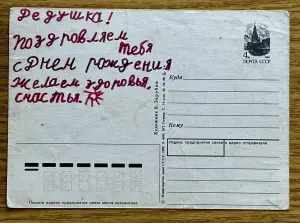 Дедушка!
Поздровляем
тебя
с Днем рождения
желаем здоровья,
счастья.
4к
ПОЧТА СССР
Куда
Кому
Индекс предприятия связи и адрес отправителя
Пишите индекс предприятия связи места назначения
Художник В. Зарубин